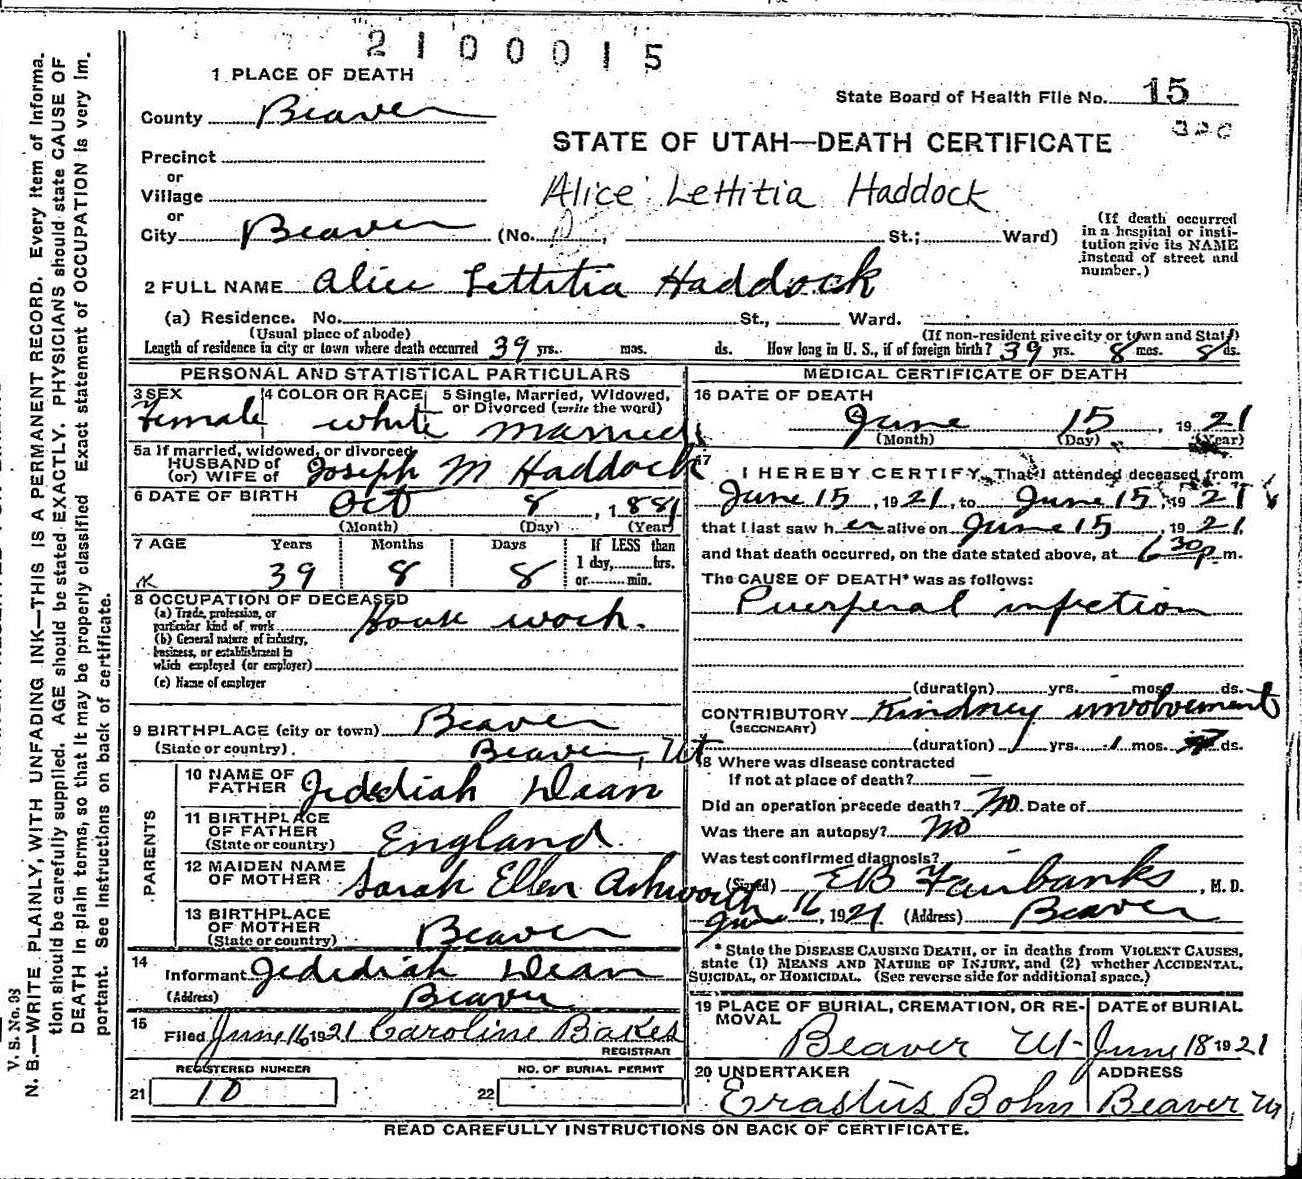 2100015
1 PLACE OF DEATH
State Board of Health File No. 15
County Beaver
STATE OF UTAH—DEATH CERTIFICATE
Precinct
or
Village
Alice Lettitia Haddock
or
City Beaver (No. , St.; Ward)
(If death occurred
in a hospital or insti-
tution give its NAME
instead of street and
number.)
2 FULL NAME Alice Lettitia Haddock
(a) Residence. No. St., Ward.
(Usual place of abode) (If non-resident give city or town and State)
Length of residence in city or town where death occurred 39 yrs. mos. ds. How long in U. S., if of foreign birth? 39 yrs. 8 mos. 8 ds.
PERSONAL AND STATISTICAL PARTICULARS
3 SEX
Female
4 COLOR OR RACE
white
5 Single, Married, Widowed,
or Divorced (write the word)
Married
5a If married, widowed, or divorced
HUSBAND of
(or) WIFE of Joseph M Haddock
6 DATE OF BIRTH
Oct 8, 1881
(Month) (Day) (Year)
7 AGE Years Months Days If LESS than
1 day, hrs.
or min.
39 8 8
8 OCCUPATION OF DECEASED
(a) Trade, profession, or
particular kind of work House work.
(b) General nature of industry,
business, or establishment in
which employed (or employer)
(c) Name of employer
9 BIRTHPLACE (city or town) Beaver
(State or country). Beaver, Ut
PARENTS
10 NAME OF
FATHER Jedediah Dean
11 BIRTHPLACE
OF FATHER
(State or country) England.
12 MAIDEN NAME
OF MOTHER Sarah Ellen Ashworth
13 BIRTHPLACE
OF MOTHER
(State or country) Beaver
14
Informant Jedediah Dean
(Address) Beaver
15
Filed June 16 1921 Caroline Bakes
REGISTRAR
REGISTERED NUMBER
21 10
NO. OF BURIAL PERMIT
22
MEDICAL CERTIFICATE OF DEATH
16 DATE OF DEATH
June 15, 1921
(Month) (Day) (Year)
17
I HEREBY CERTIFY, That I attended deceased from
June 15, 1921, to June 15, 1921
that I last saw her alive on June 15, 1921
and that death occurred, on the date stated above, at 6 30 p m.
The CAUSE OF DEATH* was as follows:
Puerperal infection
(duration) yrs. mos. ds.
CONTRIBUTORY Kindney involvement
(SECONDARY)
(duration) yrs. 1 mos. ds.
18 Where was disease contracted
if not at place of death? —
Did an operation precede death? No. Date of
Was there an autopsy? No
Was test confirmed diagnosis? —
(Signed) EB Fairbanks, M. D.
June 16, 1921 (Address) Beaver
* State the DISEASE CAUSING DEATH, or in deaths from VIOLENT CAUSES,
state (1) MEANS AND NATURE OF INJURY, and (2) whether ACCIDENTAL,
SUICIDAL, or HOMICIDAL. (See reverse side for additional space.)
19 PLACE OF BURIAL, CREMATION, OR RE-
MOVAL
Beaver Ut-
DATE OF BURIAL
June 18 1921
20 UNDERTAKER
Erastus Bohn
ADDRESS
Beaver Ut
READ CAREFULLY INSTRUCTIONS ON BACK OF CERTIFICATE.
V. S. No. 38
N. B.—WRITE PLAINLY, WITH UNFADING INK—THIS IS A PERMANENT RECORD. Every item of Informa-
tion should be carefully supplied. AGE should be stated EXACTLY. PHYSICIANS should state CAUSE OF
DEATH in plain terms, so that it may be properly classified. Exact statement of OCCUPATION is very im-
portant. See Instructions on back of certificate.